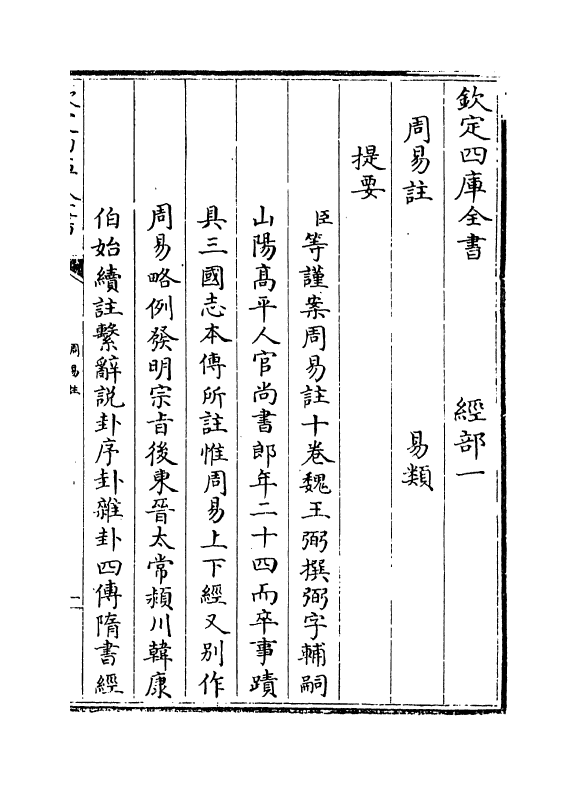 欽定四庫全書　經部一
周易註　易類
提要
臣等謹案周易註十卷魏王弼撰弼字輔嗣
山陽高平人官尚書郎年二十四而卒事蹟
具三國志本傳所註惟周易上下經又別作
周易略例發明宗旨後東晉太常潁川韓康
伯始續註繫辭説卦序卦雜卦四傳隋書經
周易註